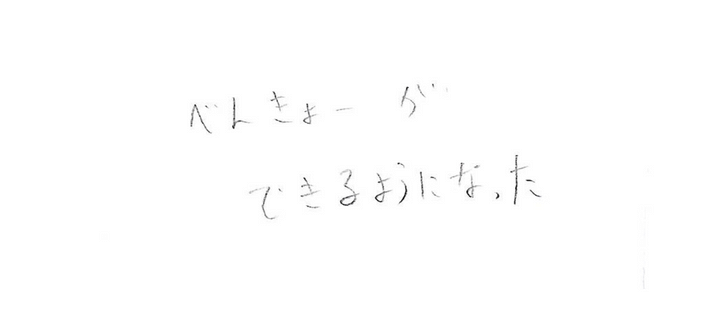 べんきょーが
できるようになった